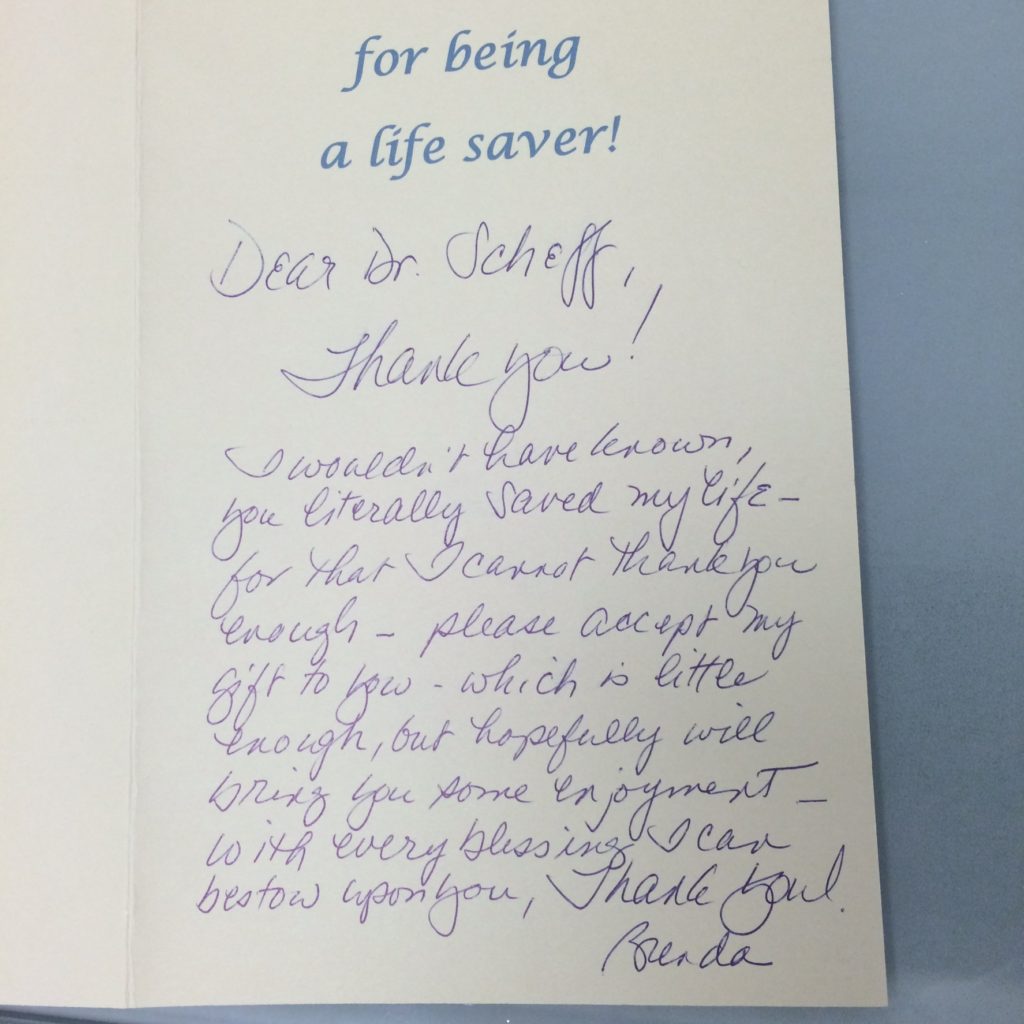 for being
a life saver!
Dear Dr. Scheff,
Thank you!
I wouldn't have known,
you literally saved my life –
for that I cannot thank you
enough – please accept my
gift to you - which is little
enough, but hopefully will
bring you some enjoyment –
with every blessing I can
bestow upon you, Thank you!
Brenda